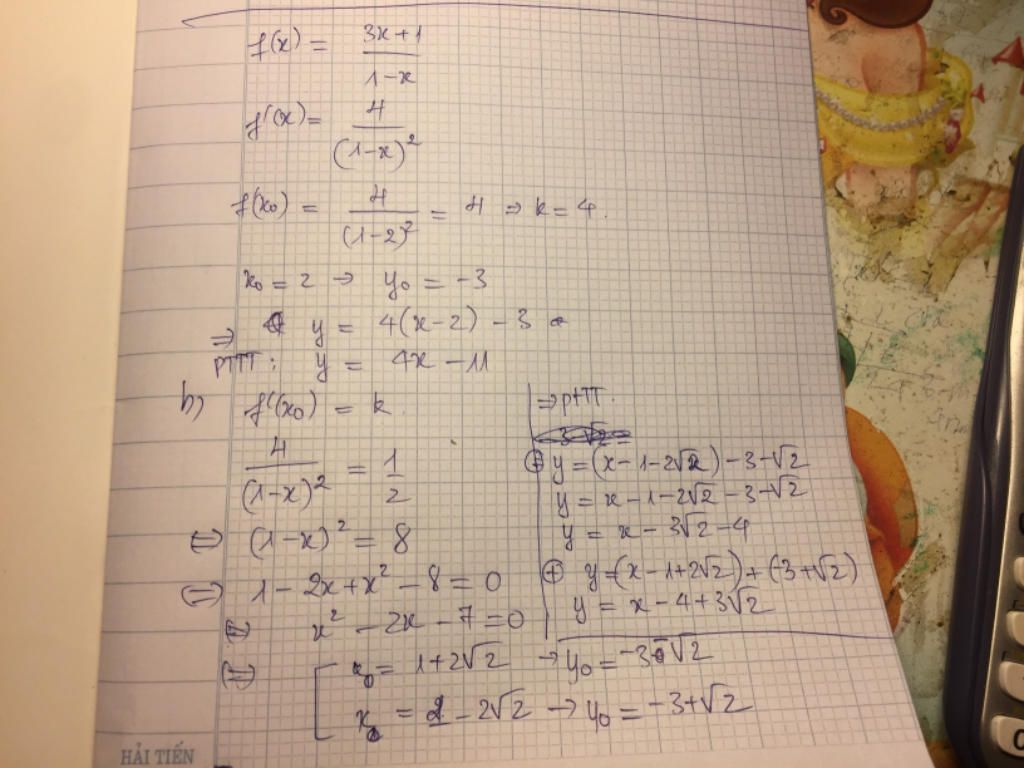 f(x) = (3x+1)/(1-x)
f'(x) = 4/(1-x)²
f(x₀) = 4/(1-2)² = 4 ⇒ k = 4.
x₀ = 2 → y₀ = -3
⇒ y = 4(x-2) - 3
PTTT: y = 4x - 11
f'(x₀) = k.
4/(1-x)² = 1/2
⇔ (1-x)² = 8
⇔ 1 - 2x + x² - 8 = 0
⇔ x² - 2x - 7 = 0
⇔ [ x₀ = 1+2√2 → y₀ = -3-√2
x₀ = 1-2√2 → y₀ = -3+√2
⇒ ptTT:
⊕ y = (x-1-2√2) - 3-√2
y = x-1-2√2 - 3-√2
y = x - 3√2 - 4
⊕ y = (x-1+2√2) + (-3+√2)
y = x - 4 + 3√2
HẢI TIẾN